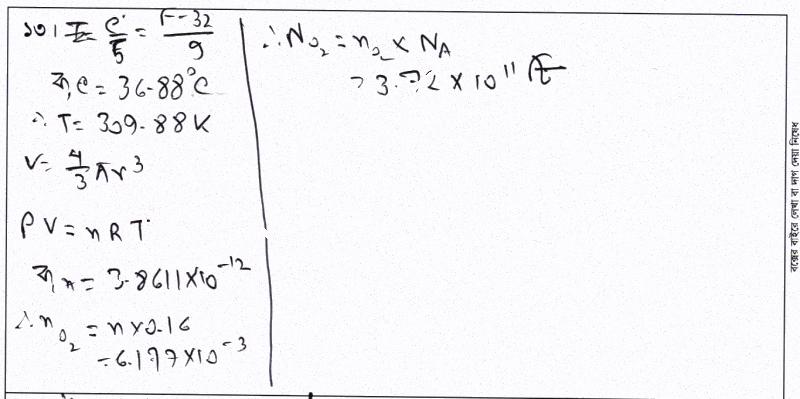 ১০। C/5 = F-32/9
বা, C = 36.88°C
∴ T = 309.88 K
V = 4/3 πr³
PV = nRT
বা, n = 3.8611×10⁻¹²
∴ n_O₂ = n×0.16
= 6.177×10⁻³
∴ N_O₂ = n_O₂ × N_A
= 3.72 × 10¹¹ টি
বক্সের বাইরে লেখা বা দাগ দেয়া নিষেধ